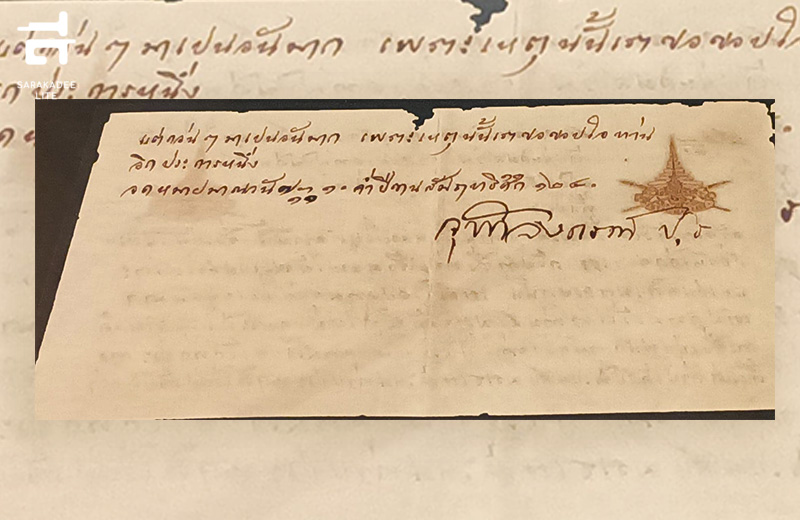 SARAKADEE
LITE
แต่ก่อน ๆ มาเปนอันมาก เพราะเหตุนั้นเราขอขอบใจ ท่าน
อีก ประการหนึ่ง
จดหมายมาณวัน ๑๐ ค่ำปีขาลสัมฤทธิศก ๑๒๔๐
จุฬาลงกรณ์ ป.ร